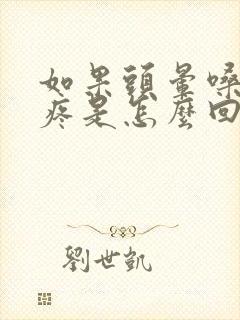 如果頭暈嗓
疼是怎麼回
劉世凱